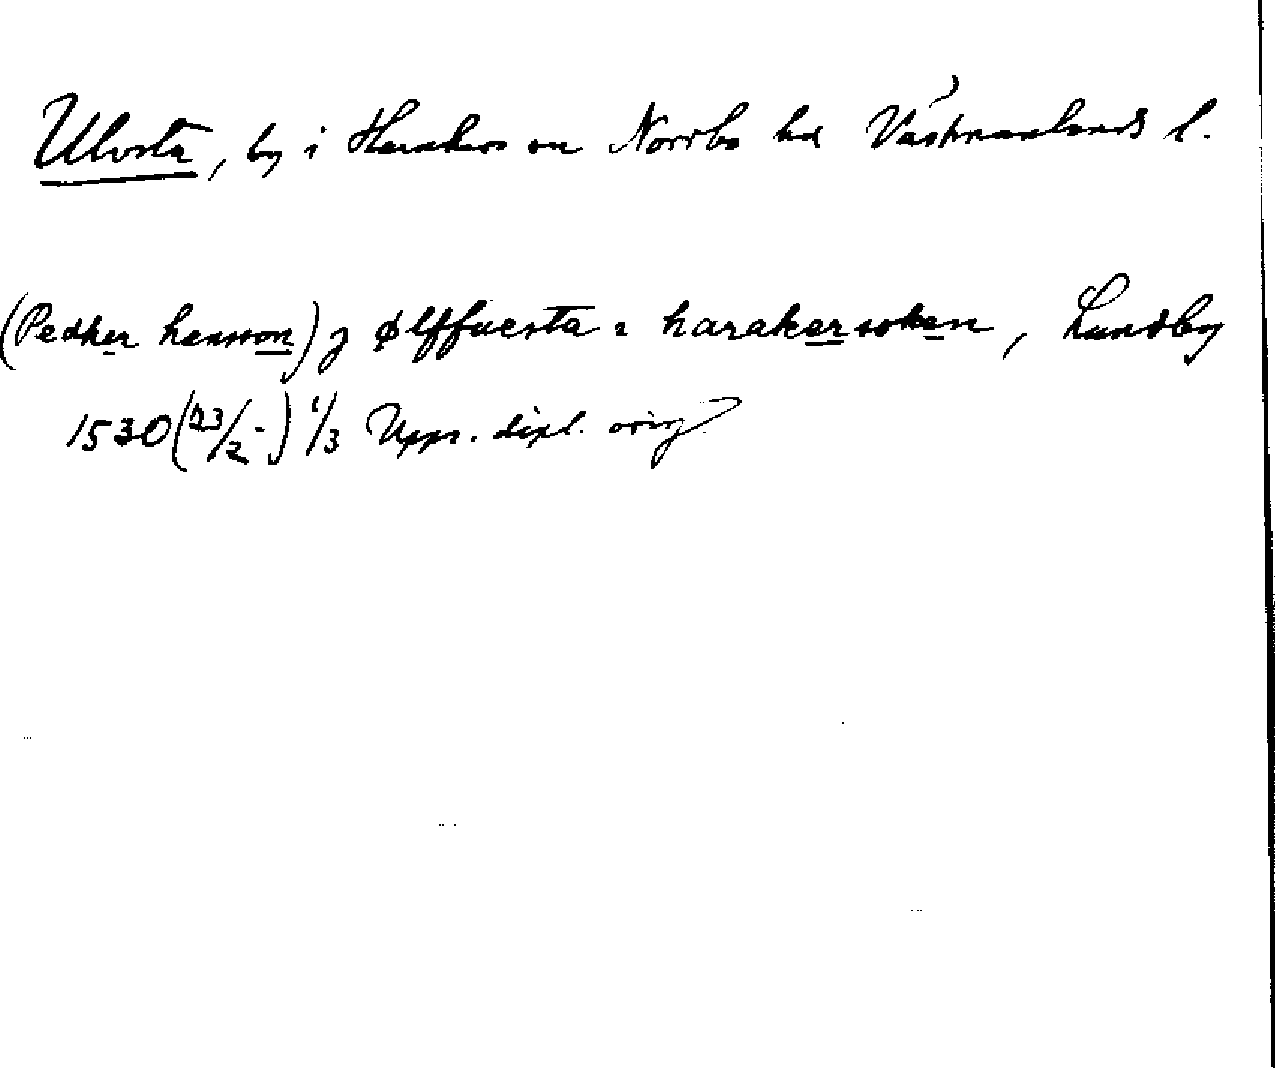 Ulvsta, by i Harakers sn Norrbo hd Västmanlands l.
(Pedher hansson) j ølffuesta i harakersoken, Lundby
1530 (23/2 -) 1/3 Upps. dipl. orig